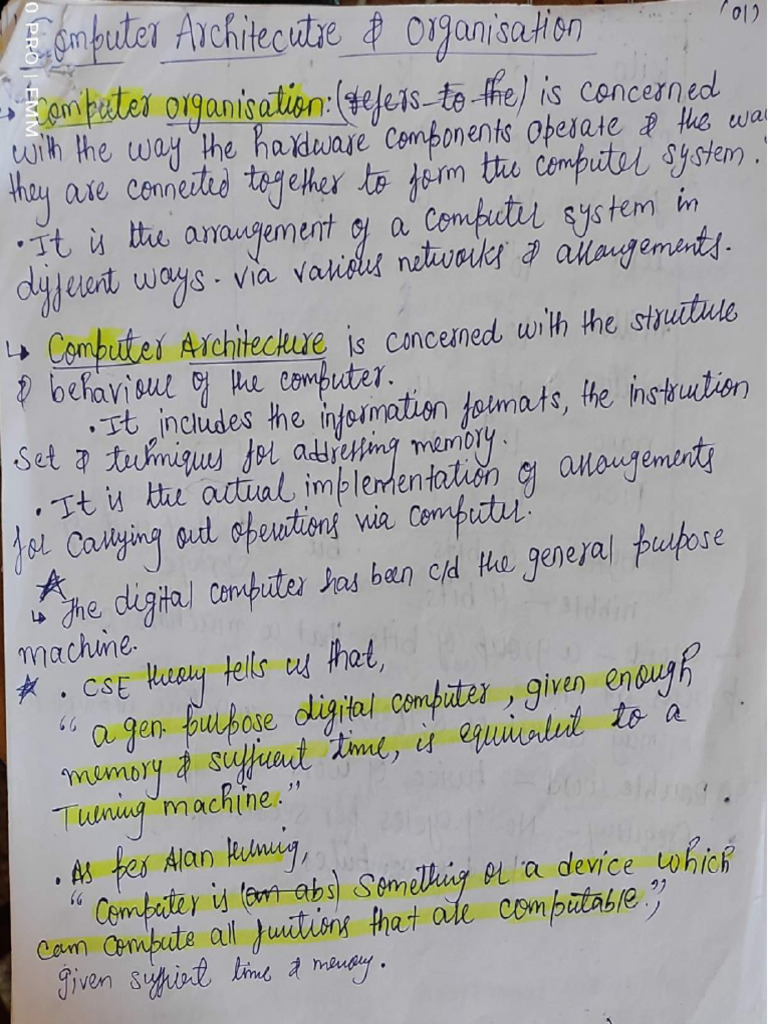 (01)
Computer Architecutre & Organisation
Computer organisation: (refers to the) is concerned
with the way the hardware components operate & the way
they are connected together to form the computer system.
• It is the arrangement of a computer system in
different ways. via various networks & arrangements.
↳ Computer Architecture is concerned with the structure
& behaviour of the computer.
• It includes the information formats, the instruction
set & techniques for addressing memory.
• It is the actual implementation of arrangements
for carrying out operations via computer.
↳ The digital computer has been c/d the general purpose
machine.
• CSE theory tells us that,
"a gen. purpose digital computer, given enough
memory & sufficient time, is equivalent to a
Turning machine."
• As per Alan turning,
"Computer is (an abs) something or a device which
can compute all functions that are computable.",
given suffient time & memory.
O PRO | EMM